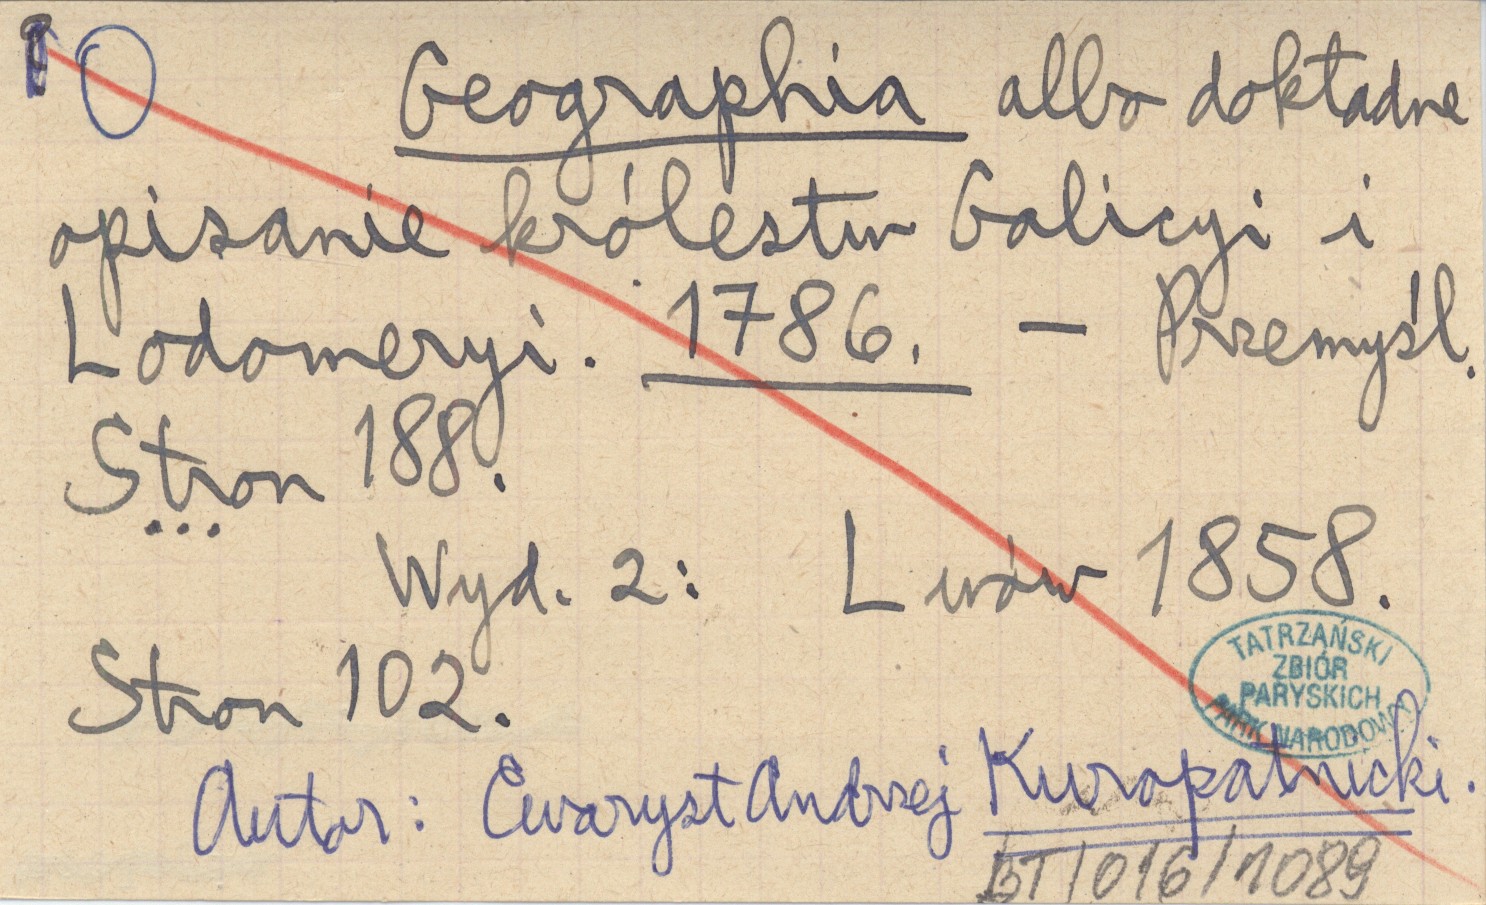 Geographia albo dokładne
opisanie królestw Galicyi i
Lodomeryi. 1786. — Przemyśl.
Stron 188.
Wyd. 2: Lwów 1858.
Stron 102.
TATRZAŃSKI
ZBIÓR
PARYSKICH
PARK NARODOWY
Autor: Ewaryst Andrzej Kuropatnicki.
BT/016/1089